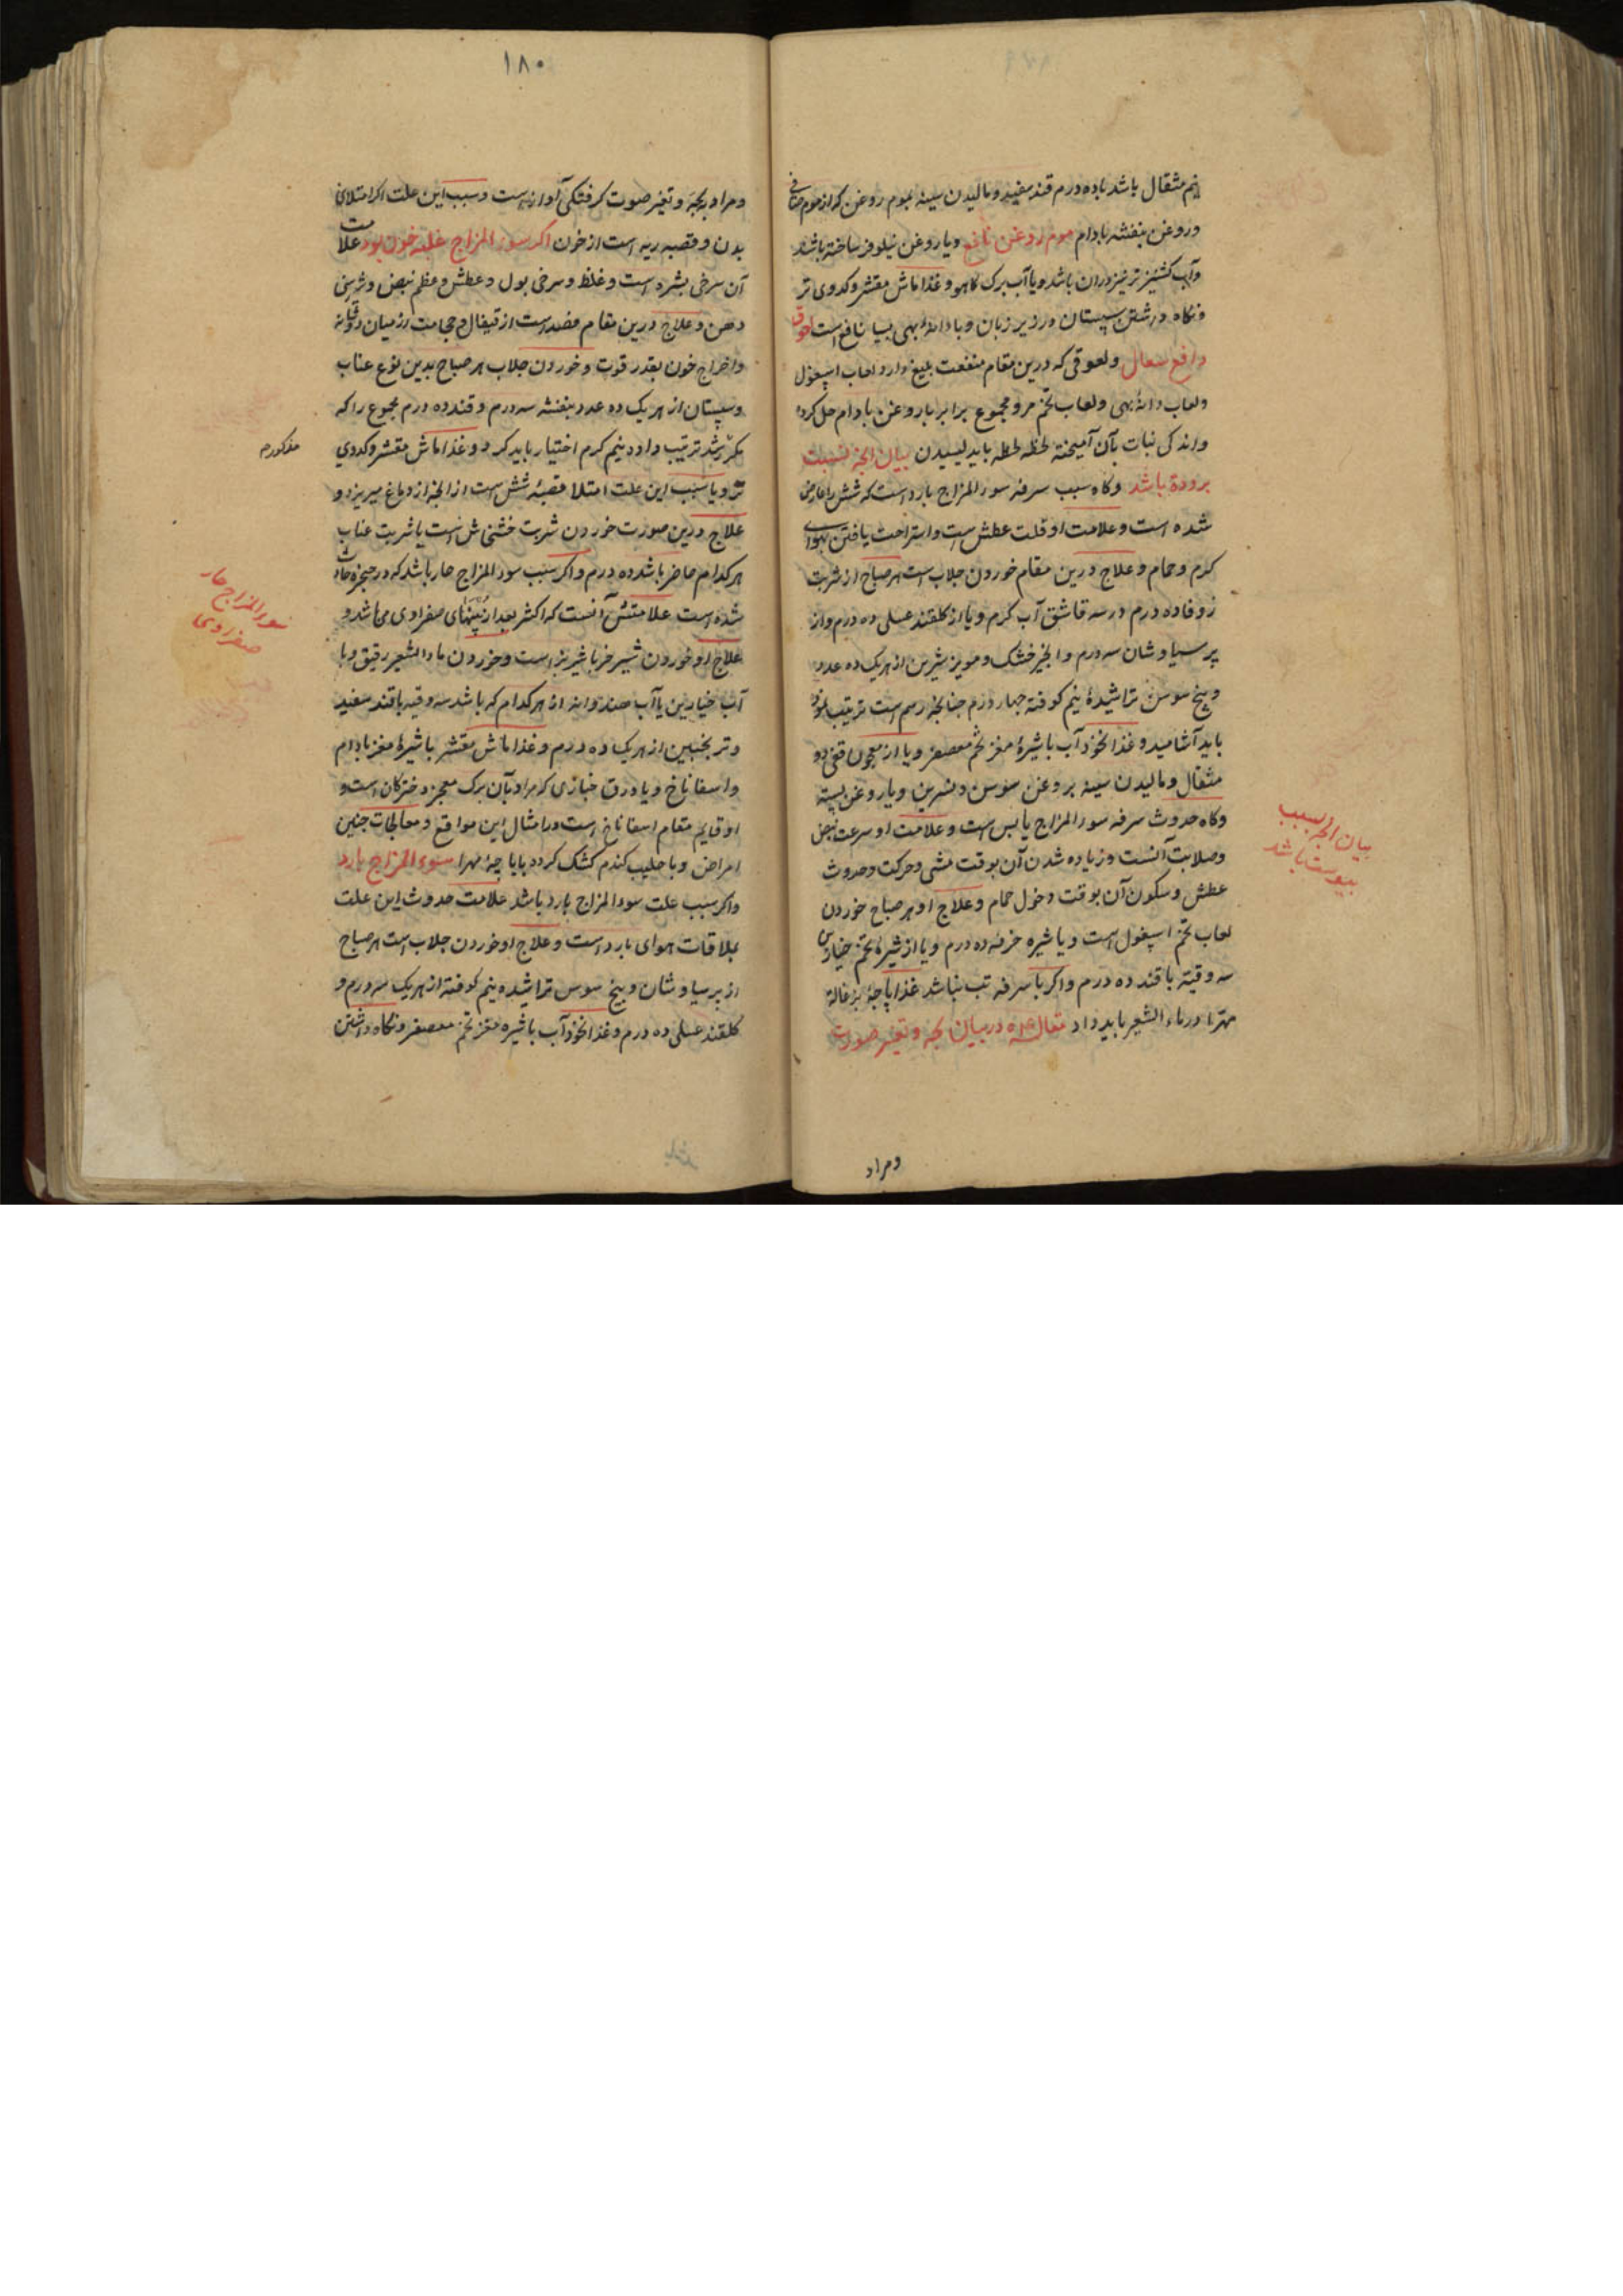 نیم مثقال باشد با ده درم قند سفید و مالیدن سینه بموم روغن که از موم صافی
و روغن بنفشه بادام موم روغن نافع و یا روغن نیلوفر ساخته باشند
و آب کشنیز تر نیز دران باشد و یا آب برک کاهو و غذا ماش مقشر و کدوی تر
و نکاه داشتن سپستان در زیر زبان و یا دانهٔ بهی بسیا نافع است لعوق
دافع سعال و لعوقی که درین مقام منفعت بلیغ دارد لعاب اسپغول
و لعاب دانهٔ بهی و لعاب تخم مرو مجموع برابر با روغن بادام حل کرده
و اندکی نبات بآن آمیخته لحظه لحظه باید لیسیدن بیان آنچه نسبت
برودة باشد و کاه سبب سرفه سوء المزاج بارد است که شش را عارض
شده است و علامت او قلت عطش است و استراحت یافتن بهوای
کرم و حمام و علاج درین مقام خوردن جلاب است هر صباح از شربت
زوفا ده درم در سه قاشق آب کرم و یا از کلقند عسلی ده درم و از
پر سیاوشان سه درم و انجیر خشک و مویز شیرین از هر یک ده عدد
و بیخ سوس تراشیدهٔ نیم کوفته چهار درم چنانچه رسم است ترتیب نموده
باید آشامید و غذا نخود آب با شیرهٔ مغز تخم معصفر و یا از معجون قفی دو
مثقال و مالیدن سینه بروغن سوسن و نسرین و یا روغن پسته
و کاه حدوث سرفه سوء المزاج یابس است و علامت او سرعت نبض
و صلابت آنست و زیاده شدن آن بوقت مشی و حرکت و حدوث
عطش و سکون آن بوقت دخول حمام و علاج او هر صباح خوردن
لعاب تخم اسپغول است و یا شیره خرفه ده درم و یا از شیرهٔ تخم خیارین
سه وقیه با قند ده درم و اکر با سرفه تب نباشد غذا پاچهٔ بزغاله
مهرا در ماء الشعیر باید داد در بیان بحه و تغیر صورت
بیان آنچه بسبب
یبوست باشد
و مراد
۱۸۰
و مراد بحة و تغیر صوت کرفتکی آواز است و سبب این علت اکر امتلای
بدن و قصبه ریه است از خون اکر سوء المزاج غلبه خون بود علامت
آن سرخی بشره است و غلظ و سرخی بول و عطش و عظم نبض و شیرینی
دهن و علاج درین مقام فصد است از قیفال و حجامت از میان دو شانه
و اخراج خون بقدر قوت و خوردن جلاب هر صباح بدین نوع عناب
و سپستان از هر یک ده عدد بنفشه سه درم و قند ده درم مجموع را که
ترتیب داده نیم کرم اختیار باید کرد و غذا ماش مقشر و کدوی
مذکوره
تر و یا سبب این علت امتلا قصبهٔ شش است از آنچه از دماغ میریزد و
علاج درین صورت خوردن شربت خشخاش است یا شربت عناب
هر کدام حاضر باشد ده درم و اکر سبب سوء المزاج حار باشد که در حنجره حادث
شده است علامتش آنست که اکثر بعد از تبهای صفراوی می باشد و
علاج او خوردن شیر خر با شیر بز است و خوردن ماء الشعیر رقیق و با
آب خیارین یا آب هندوانه از هر کدام که باشد سه وقیه با قند سفید
و ترنجبین از هر یک ده درم و غذا ماش مقشر با شیرهٔ مغز بادام
و اسفاناخ و یا ورق خبازی که مراد بآن برک معجزه دخترکان است و
او قایم مقام اسفاناخ است در امثال این مواقع و معالجات چنین
امراض و یا حلیب کندم کشک کرده با پاچهٔ مهرا سوء المزاج بارد
و اکر سبب علت سوء المزاج بارد باشد علامت حدوث این علت
بملاقات هوای بارد است و علاج او خوردن جلاب است هر صباح
از پر سیاوشان و بیخ سوس تراشیده نیم کوفته از هر یک سه درم و
کلقند عسلی ده درم و غذا نخود آب با شیره مغز تخم معصفر و نکاه داشتن
سوء المزاج حار
صفراوی